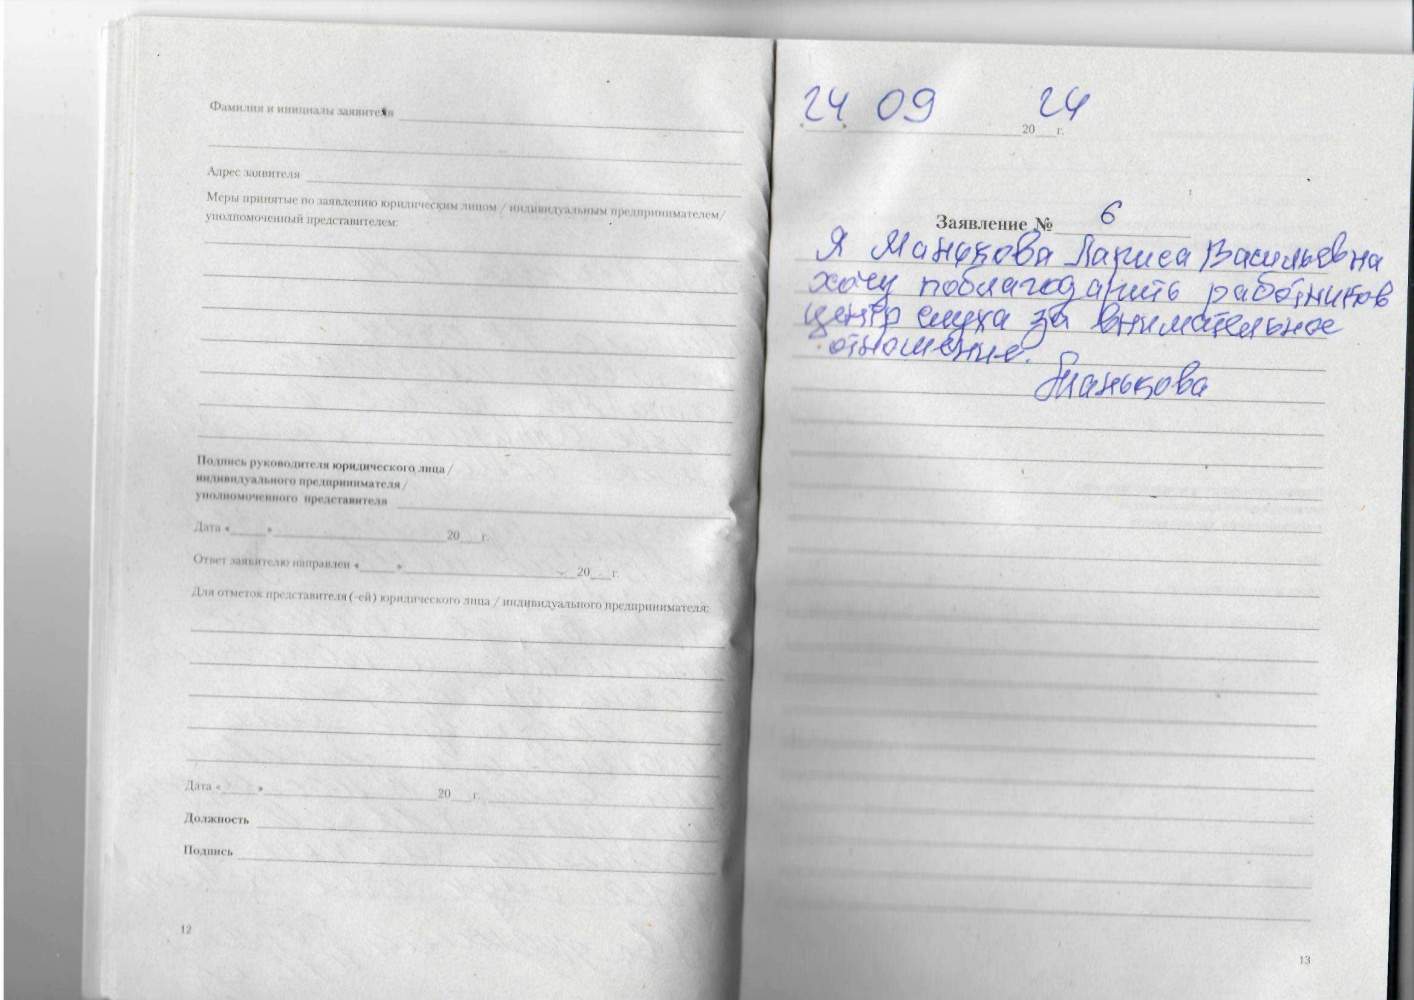 Фамилия и инициалы заявителя
Адрес заявителя
Меры принятые по заявлению юридическим лицом / индивидуальным предпринимателем/
уполномоченный представителем:
Подпись руководителя юридического лица /
индивидуального предпринимателя /
уполномоченного представителя
Дата «_____»__________20___г.
Ответ заявителю направлен «_____»__________20___г.
Для отметок представителя (-ей) юридического лица / индивидуального предпринимателя:
Дата «_____»__________20___г.
Должность
Подпись
12
24 09 24
20___г.
Заявление № 6
Я Манькова Лариса Васильевна
хочу поблагодарить работников
центр слуха за внимательное
отношение.
Манькова
13